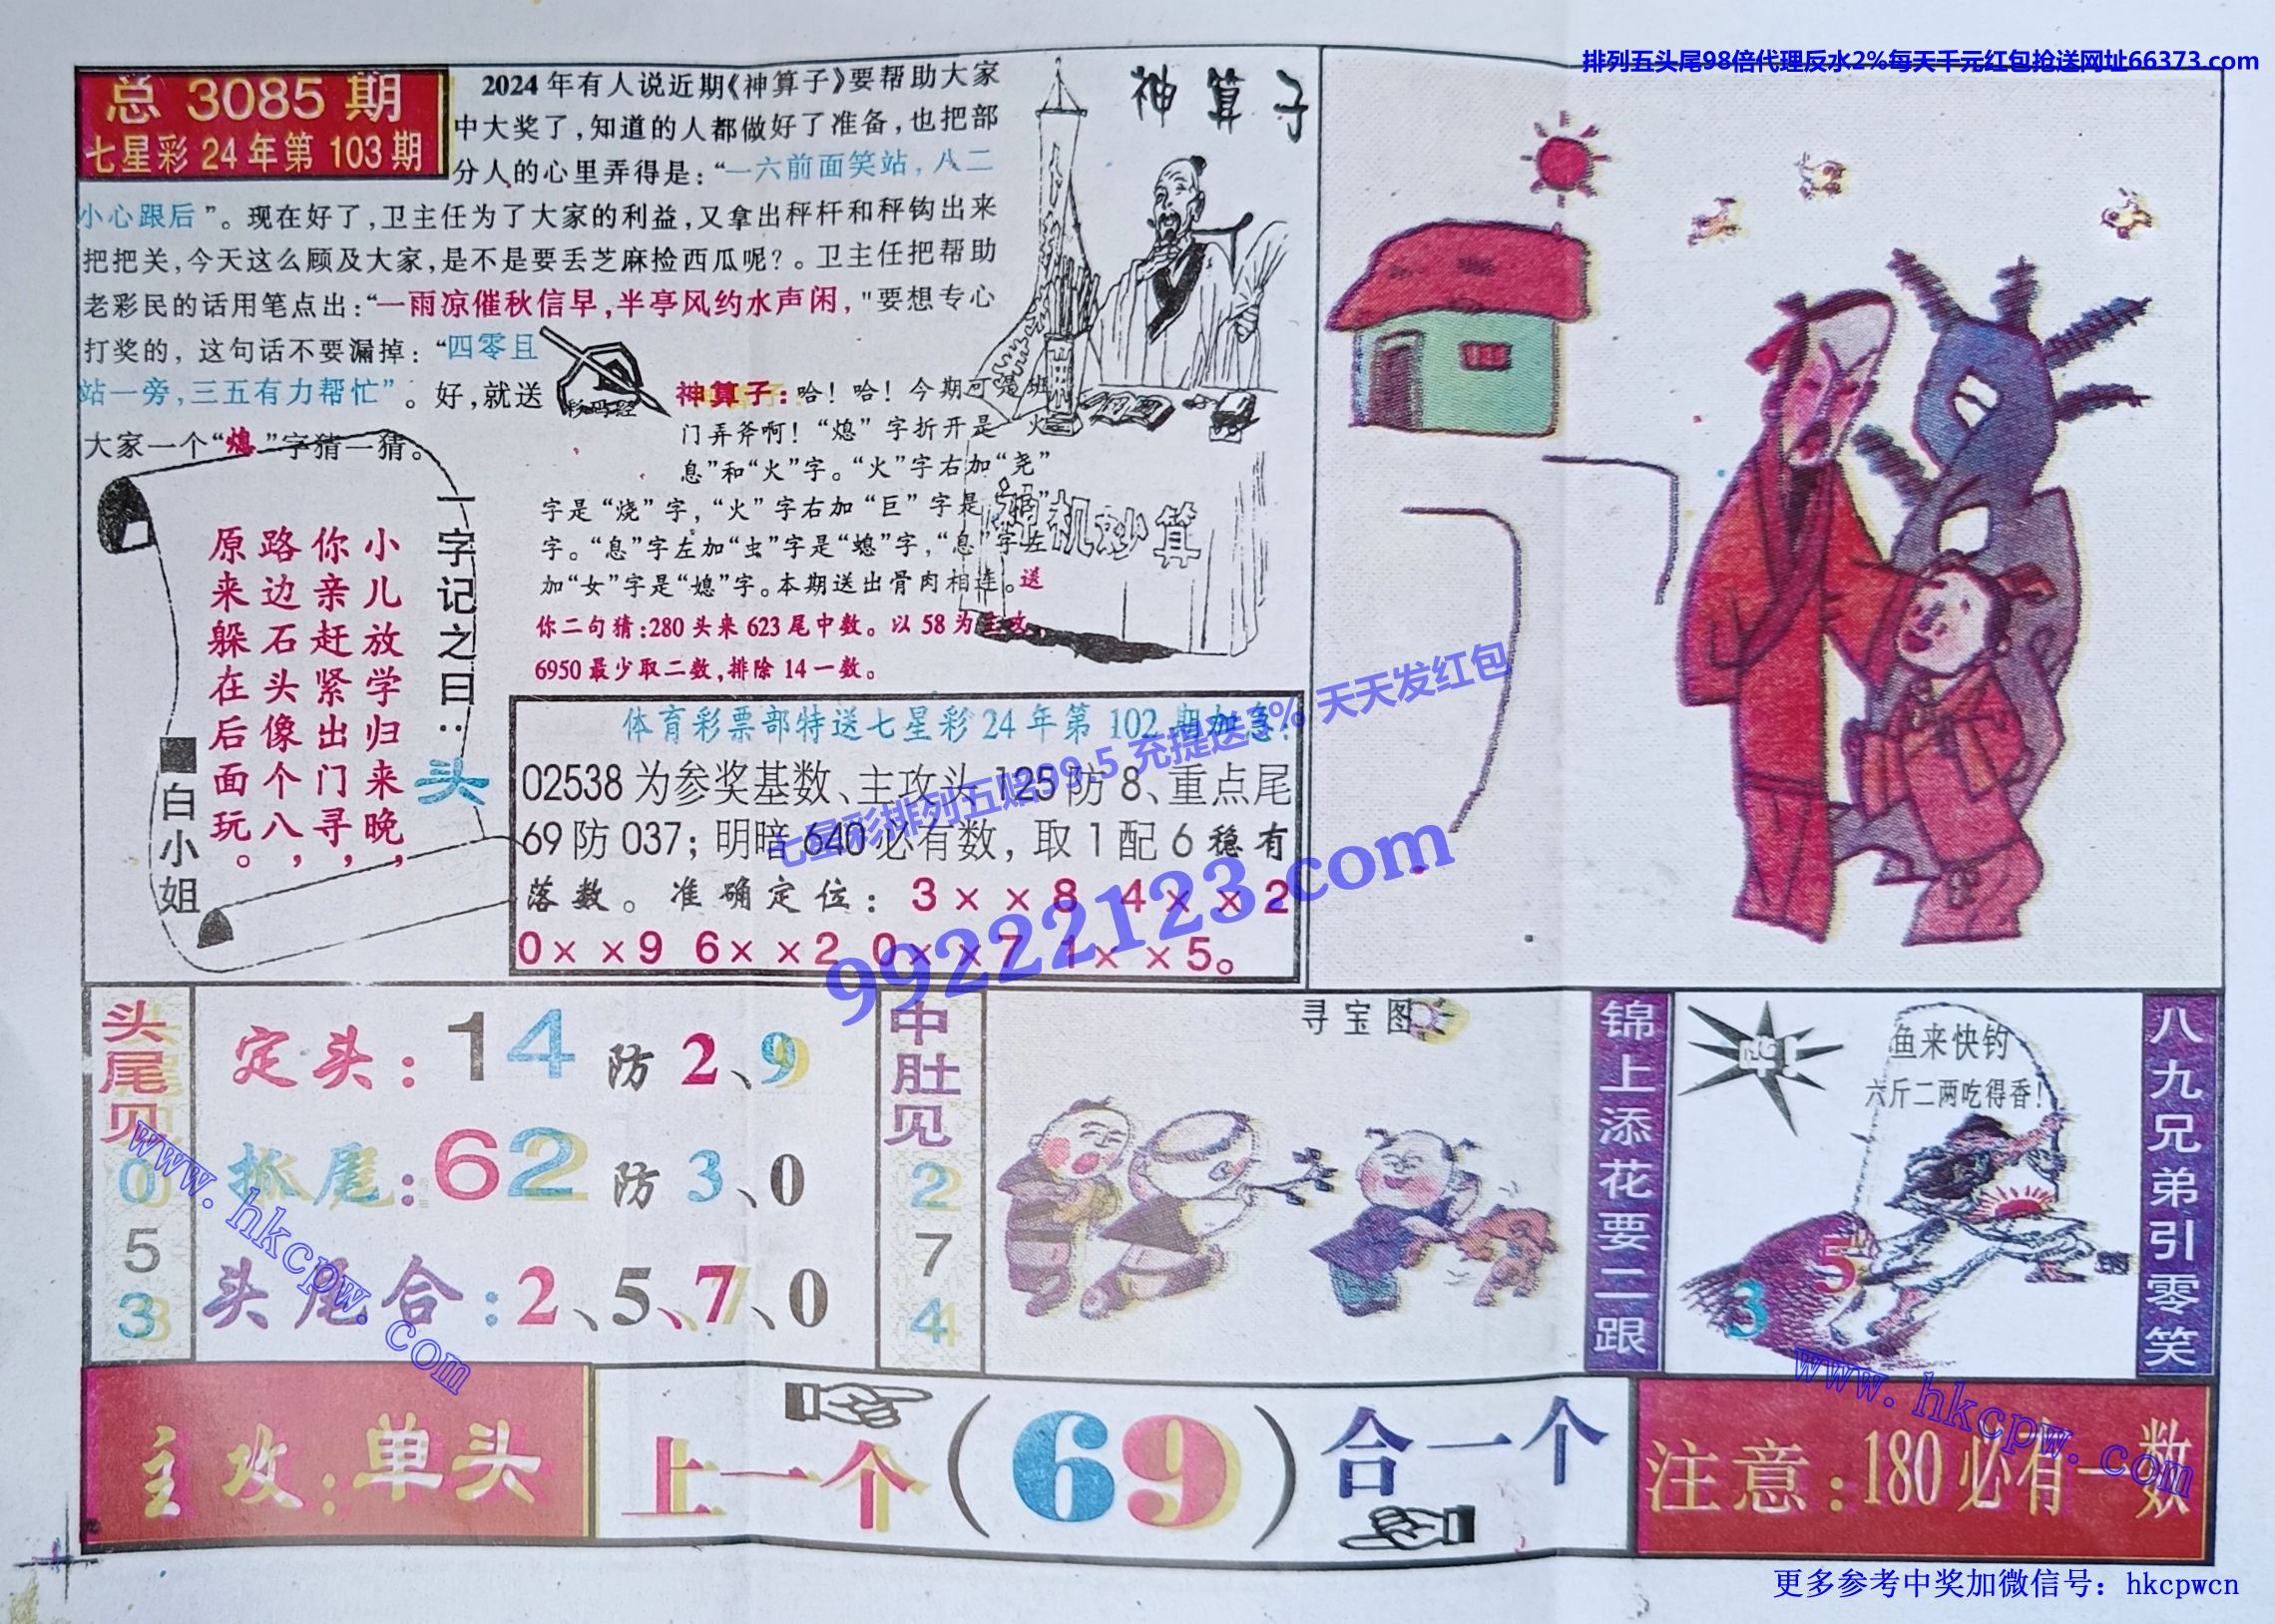 排列五头尾98倍代理反水2%每天千元红包抢送网址66373.com
总 3085 期
七星彩 24 年第 103 期
2024 年有人说近期《神算子》要帮助大家
中大奖了，知道的人都做好了准备，也把部
分人的心里弄得是：“一六前面笑站，八二
小心跟后”。现在好了，卫主任为了大家的利益，又拿出秤杆和秤钩出来
把把关，今天这么顾及大家，是不是要丢芝麻捡西瓜呢？。卫主任把帮助
老彩民的话用笔点出：“一雨凉催秋信早，半亭风约水声闲，"要想专心
打奖的，这句话不要漏掉：“四零且
站一旁，三五有力帮忙”。好，就送
大家一个“熄”字猜一猜。
神算子
彩码经
神算子：哈！哈！今期可是班
门弄斧啊！“熄”字折开是“火
息”和“火”字。“火”字右加“尧”
字是“烧”字，“火”字右加“巨”字是
字。“息”字左加“虫”字是“螅”字，“息”字左
加“女”字是“媳”字。本期送出骨肉相连。送
你二句猜：280 头来 623 尾中数。以 58 为主攻，
6950 最少取二数，排除 14 一数。
神机妙算
一字记之曰：头
小儿放学归来晚，
你亲赶紧出门寻，
路边石头像个八，
原来躲在后面玩。
白小姐
体育彩票部特送七星彩 24 年第 102 期加急：
02538 为参奖基数、主攻头 125 防 8、重点尾
69 防 037；明暗 640 必有数，取 1 配 6 稳有
落数。准确定位：3××8 4××2
0××9 6××2 0××7 1××5。
七星彩排列五赔99.5 充提送3% 天天发红包
99222123.com
头尾见
0
5
3
定头：14 防 2、9
抓尾：62 防 3、0
头尾合：2、5、7、0
中肚见
2
7
4
寻宝图
锦上添花要二跟
鱼来快钓
六斤二两吃得香！
3
5
八九兄弟引零笑
www.hkcpw.com
www.hkcpw.com
主攻：单头
上一个（69）合一个
注意：180 必有一数
更多参考中奖加微信号：hkcpwcn